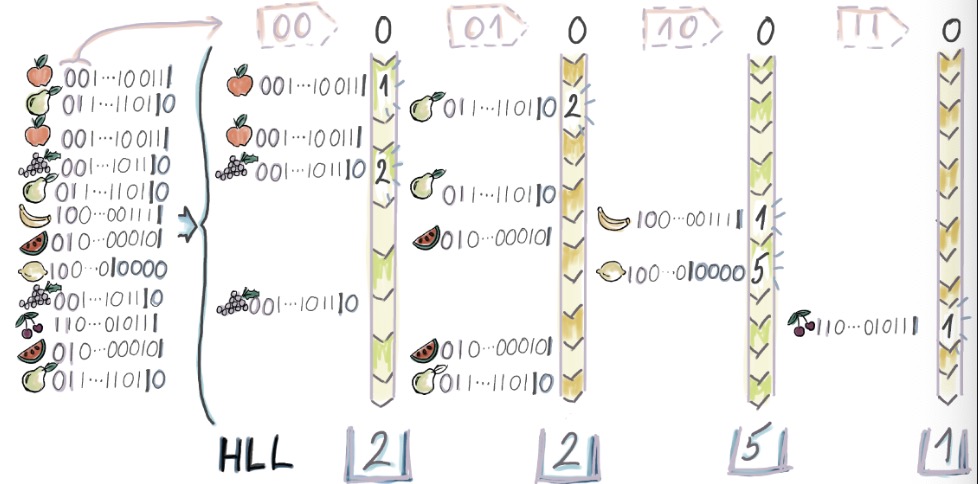 00 0 01 0 10 0 11 0
001···100111
011···110110
001···100111
001···101110
011···110110
100···001111
010···000101
100···010000
001···101110
110···010111
010···000101
011···110110
001···100111 1
001···100111
001···101110 2
001···101110
011···110110 2
011···110110
010···000101
010···000101
011···110110
100···001111 1
100···010000 5
110···010111 1
HLL 2 2 5 1